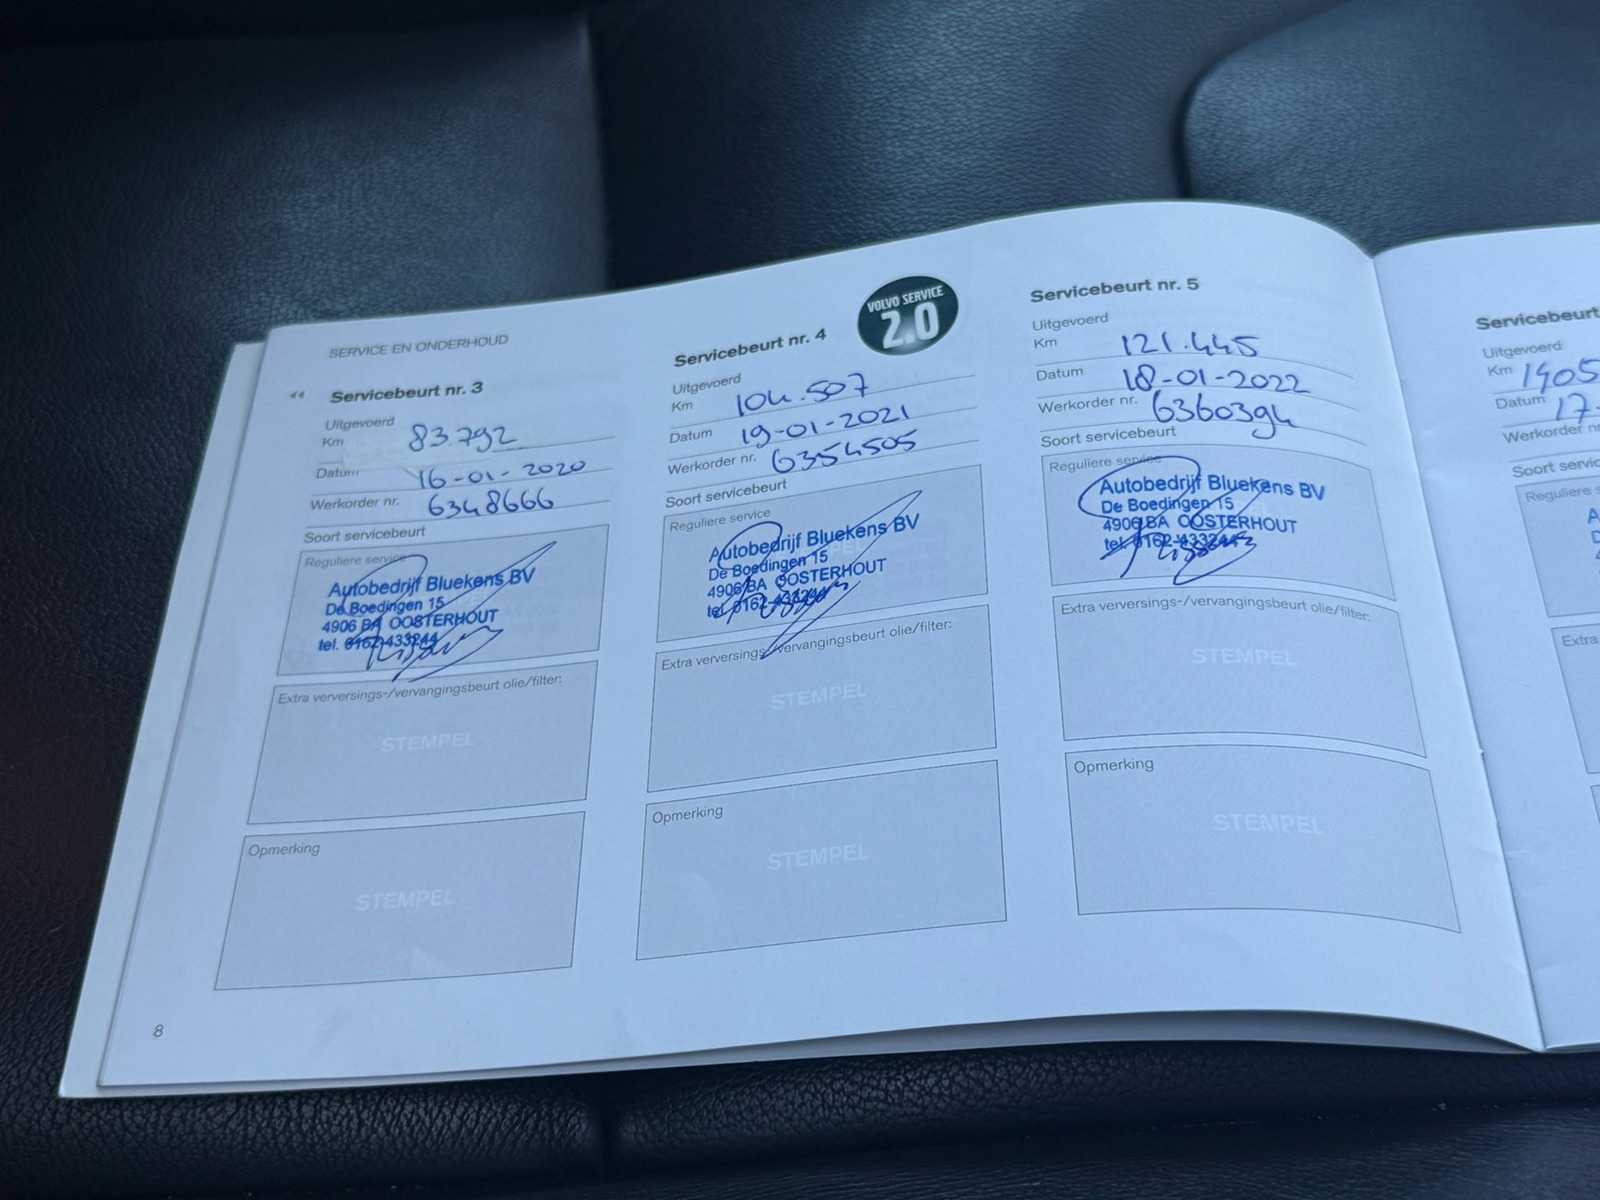 SERVICE EN ONDERHOUD
Servicebeurt nr. 3
Uitgevoerd
Km 83.792
Datum 16-01-2020
Werkorder nr. 6348666
Soort servicebeurt
Reguliere service
Autobedrijf Bluekens BV
De Boedingen 15
4906 BA OOSTERHOUT
tel. 0162-433244
Extra verversings-/vervangingsbeurt olie/filter:
STEMPEL
Opmerking
STEMPEL
8
VOLVO SERVICE
2.0
Servicebeurt nr. 4
Uitgevoerd
Km 104.507
Datum 19-01-2021
Werkorder nr. 6354505
Soort servicebeurt
Reguliere service
Autobedrijf Bluekens BV
De Boedingen 15
4906 BA OOSTERHOUT
tel. 0162-433244
Extra verversings-/vervangingsbeurt olie/filter:
STEMPEL
Opmerking
STEMPEL
Servicebeurt nr. 5
Uitgevoerd
Km 121.445
Datum 18-01-2022
Werkorder nr. 6360394
Soort servicebeurt
Reguliere service
Autobedrijf Bluekens BV
De Boedingen 15
4906 BA OOSTERHOUT
tel. 0162-433244
Extra verversings-/vervangingsbeurt olie/filter:
STEMPEL
Opmerking
STEMPEL
Servicebeurt
Uitgevoerd
Km 1405
Datum 17-
Werkorder
Soort
Reguliere
Extra